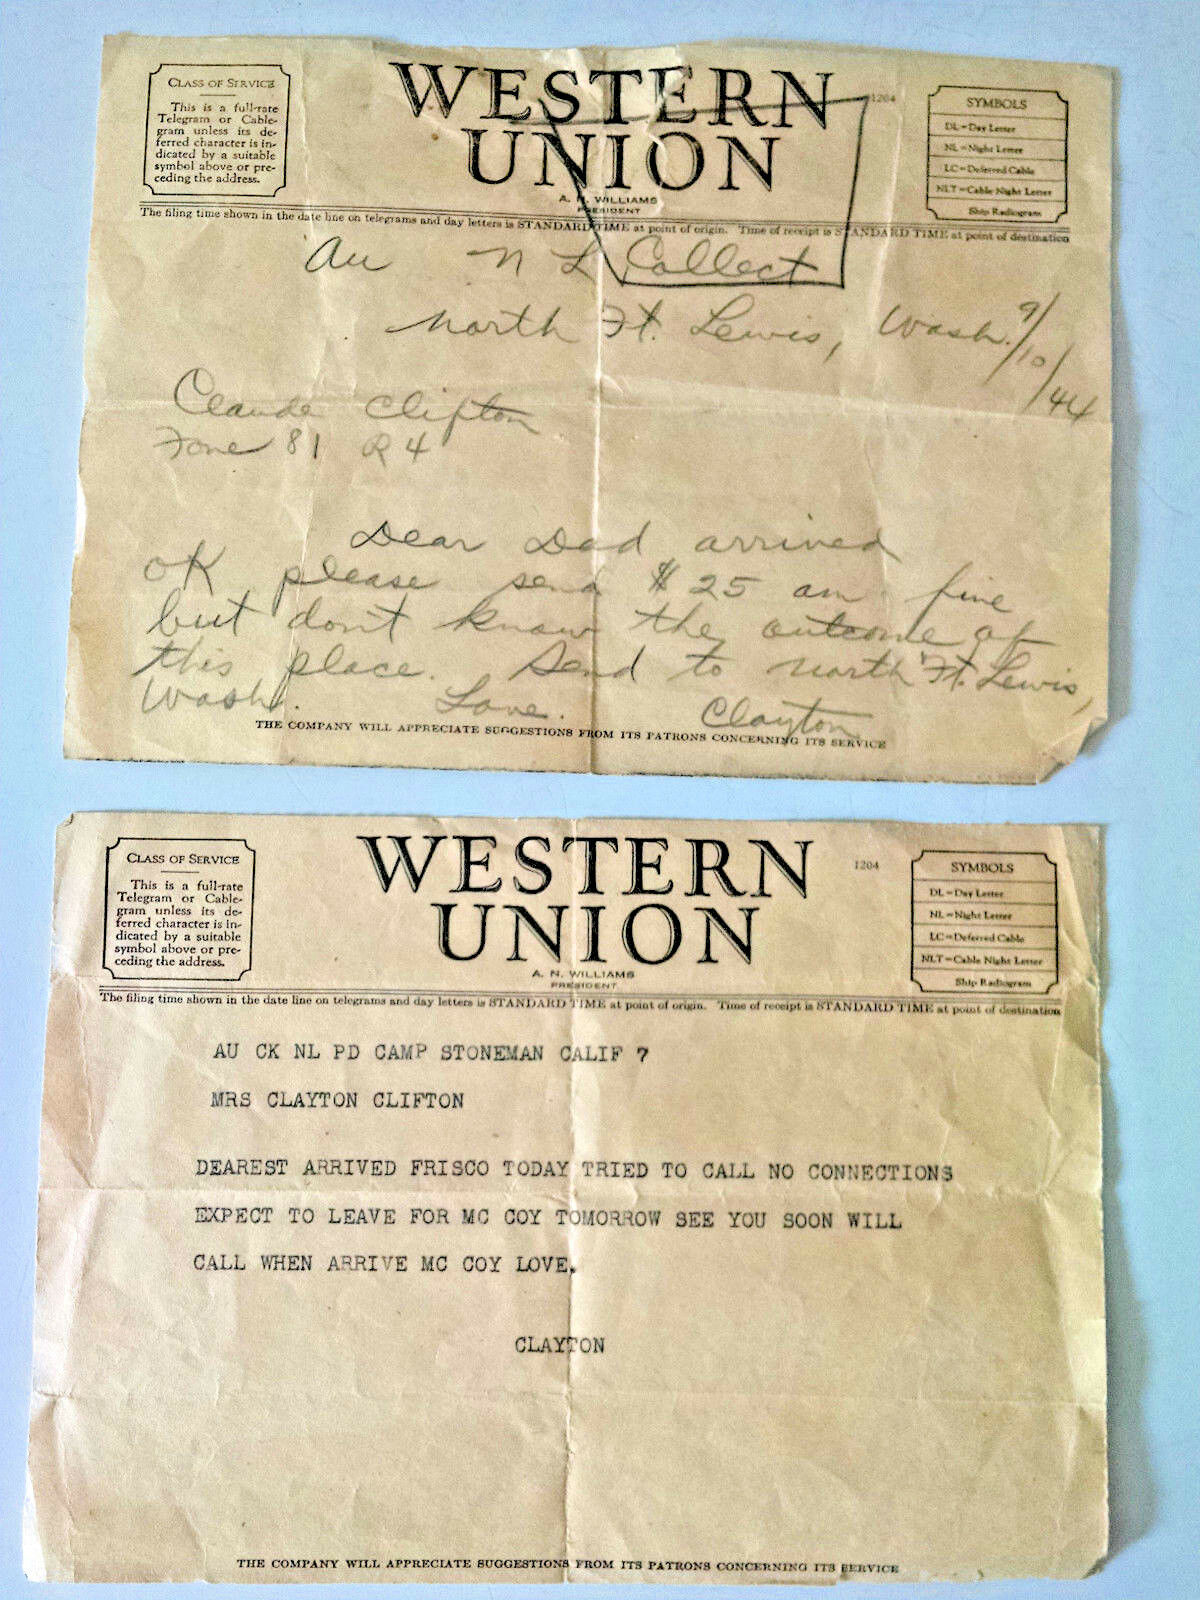 CLASS OF SERVICE
This is a full-rate
Telegram or Cable-
gram unless its de-
ferred character is in-
dicated by a suitable
symbol above or pre-
ceding the address.
WESTERN
UNION
1204
A. N. WILLIAMS
PRESIDENT
SYMBOLS
DL=Day Letter
NL=Night Letter
LC=Deferred Cable
NLT=Cable Night Letter
Ship Radiogram
The filing time shown in the date line on telegrams and day letters is STANDARD TIME at point of origin. Time of receipt is STANDARD TIME at point of destination
Au N L Collect
North Ft. Lewis, Wash. 9/10/44
Claude Clifton
Fone 81 R 4
Dear Dad arrived
OK please send $25 am fine
but don't know the outcome of
this place. Send to North Ft. Lewis,
Wash. Love. Clayton
THE COMPANY WILL APPRECIATE SUGGESTIONS FROM ITS PATRONS CONCERNING ITS SERVICE
CLASS OF SERVICE
This is a full-rate
Telegram or Cable-
gram unless its de-
ferred character is in-
dicated by a suitable
symbol above or pre-
ceding the address.
WESTERN
UNION
1204
A. N. WILLIAMS
PRESIDENT
SYMBOLS
DL=Day Letter
NL=Night Letter
LC=Deferred Cable
NLT=Cable Night Letter
Ship Radiogram
The filing time shown in the date line on telegrams and day letters is STANDARD TIME at point of origin. Time of receipt is STANDARD TIME at point of destination
AU CK NL PD CAMP STONEMAN CALIF 7
MRS CLAYTON CLIFTON
DEAREST ARRIVED FRISCO TODAY TRIED TO CALL NO CONNECTIONS
EXPECT TO LEAVE FOR MC COY TOMORROW SEE YOU SOON WILL
CALL WHEN ARRIVE MC COY LOVE.
CLAYTON
THE COMPANY WILL APPRECIATE SUGGESTIONS FROM ITS PATRONS CONCERNING ITS SERVICE